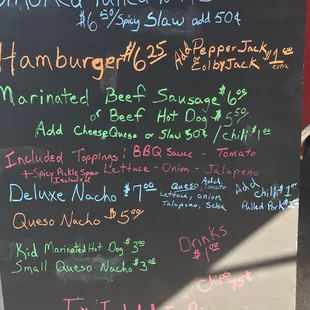 $6.50/Spicy Slaw add 50¢
Hamburger $6.25
Add Pepper Jack
or ColbyJack
$1.00
extra
Marinated Beef Sausage $6.00
or Beef Hot Dog $5.50
Add Cheese Queso or Slaw 50¢ / chili $1.00
Included Toppings: BBQ Sauce - Tomato
+ Spicy Pickle Spear Lettuce - Onion - Jalapeno
Included
Deluxe Nacho $7.00
Queso, Tomato
Lettuce, onion
Jalapeno,
Add
Chili $1.00
Pulled Pork
Queso Nacho $5.00
Kid Marinated Hot Dog $3.00
Small Queso Nacho $3.00
Drinks
$1.00
Chips
75¢